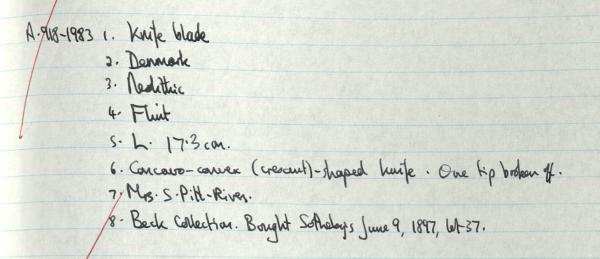 A.918-1983 1. Knife blade
2. Denmark
3. Neolithic
4. Flint
5. L. 17.3cm.
6. Concavo-convex (crescent)-shaped knife. One tip broken off.
7. Mrs. S. Pitt-Rivers.
8. Beck Collection. Bought Sothebys June 9, 1897, lot 37.